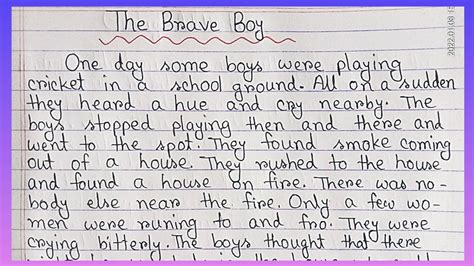 The Brave Boy
One day some boys were playing
cricket in a school ground. All on a sudden
they heard a hue and cry nearby. The
boys stopped playing then and there and
went to the spot. They found smoke coming
out of a house. They rushed to the house
and found a house on fire. There was no-
body else near the fire. Only a few wo-
men were runing to and fro. They were
crying bitterly. The boys thought that there